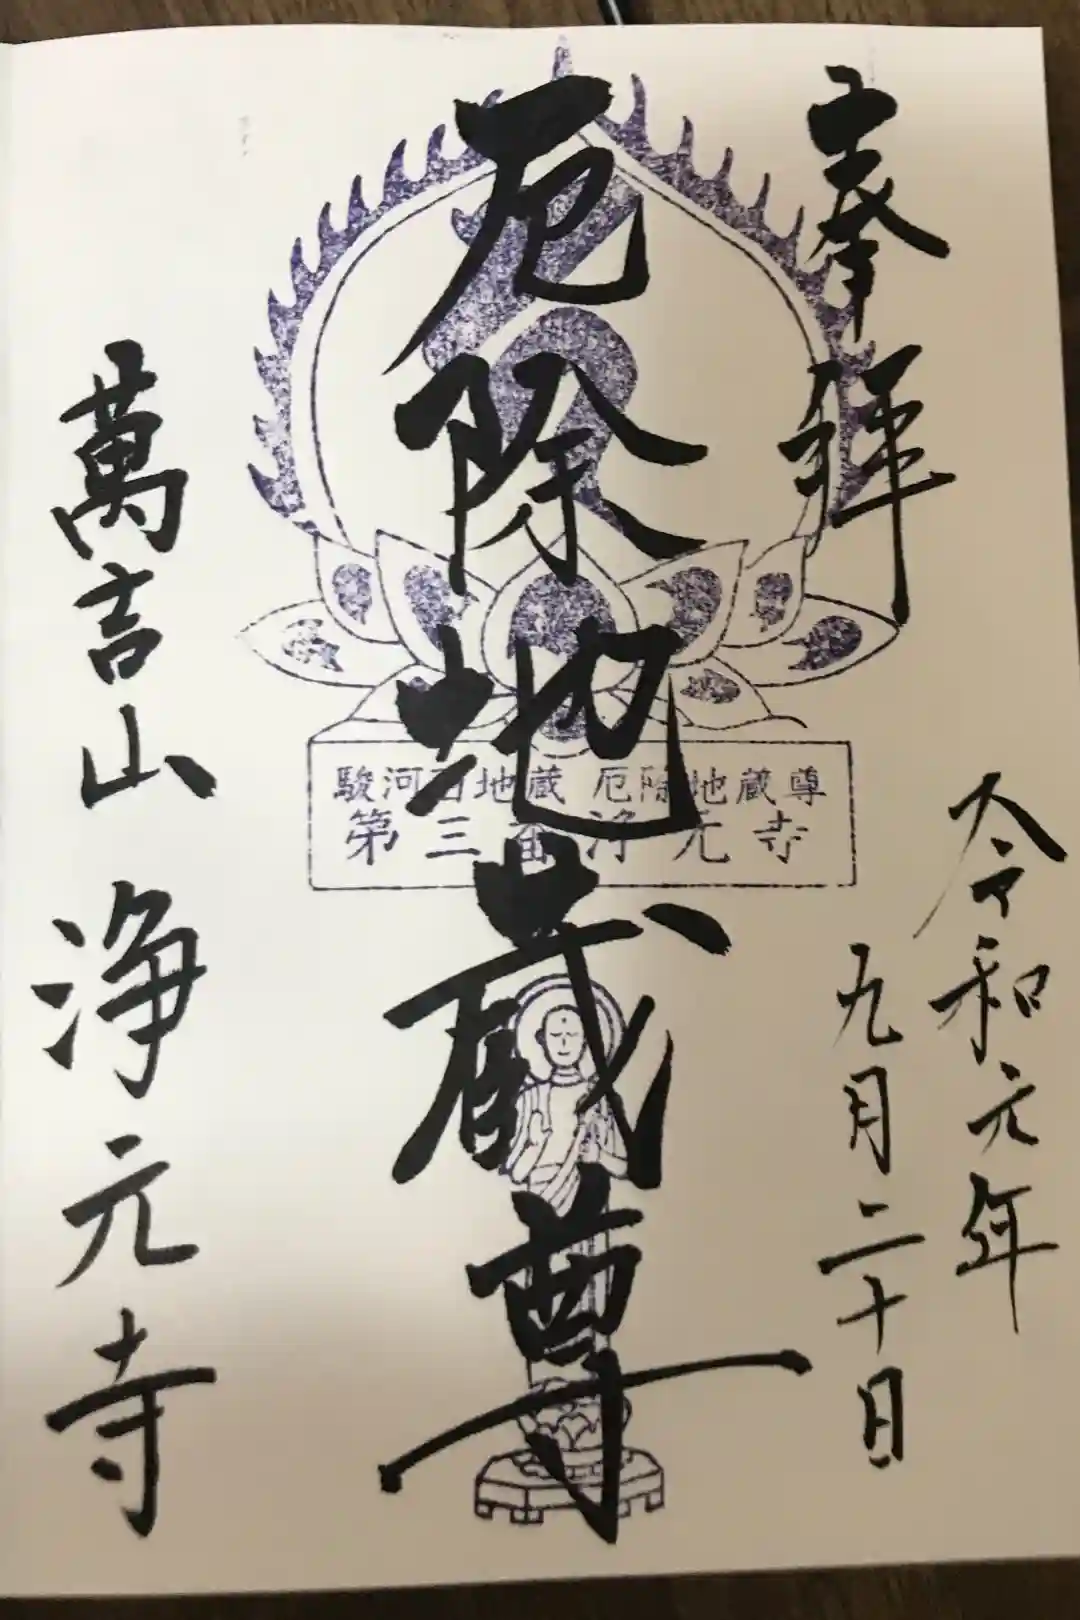 奉拝
令和元年
九月二十日
厄除地蔵尊
駿河百地蔵 厄除地蔵尊
第三番 浄元寺
萬吉山 浄元寺